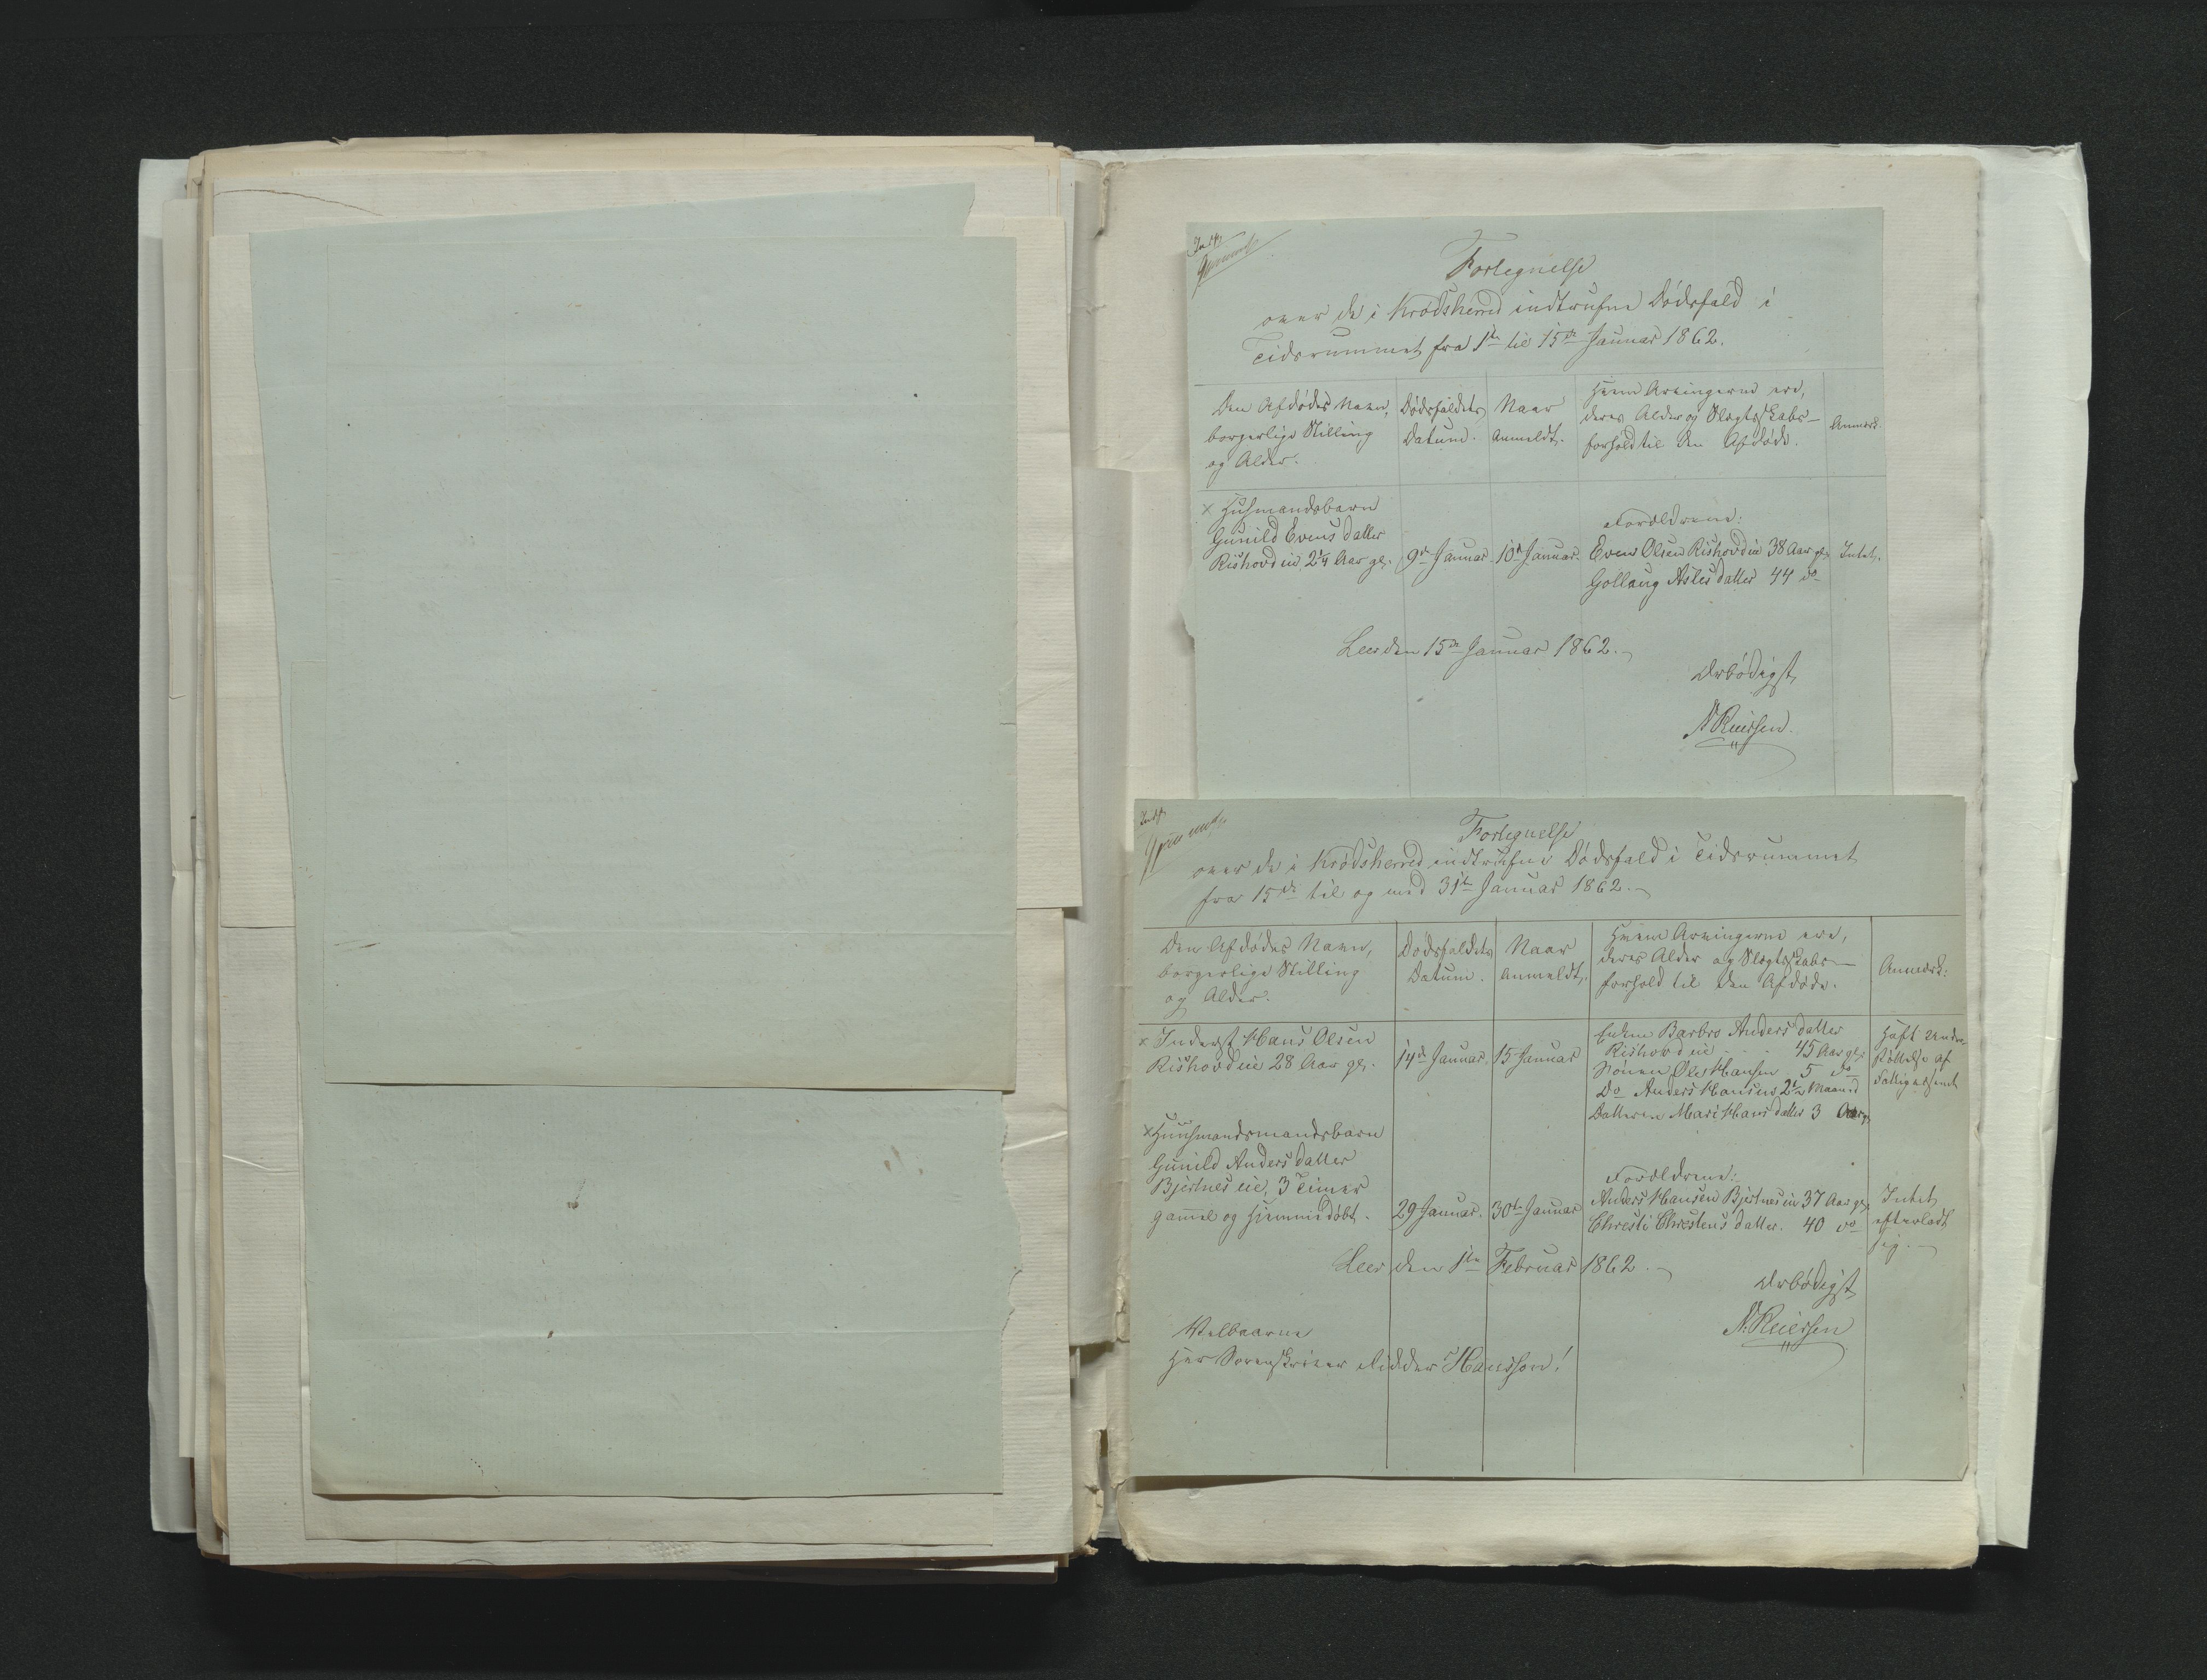 Fortegnelse
over de i Krødsherred indtrufne Dødsfald i
Tidsrummet fra 1ste til 15de Januar 1862.
Den Afdødes Navn, borgerlige Stilling og Alder.
Dødsfaldets Datum.
Naar anmeldt.
Hvem Arvingerne ere, deres Alder og Slægtskabs-forhold til den Afdøde.
Anmærk.
× Husmandsbarn
Gunild Evensdatter
Rishovdeie, 2 1/4 Aar gl.
9de Januar.
10de Januar.
Forældrene:
Even Olsen Rishovdeie 38 Aar gl.
Gollaug Aslesdatter 44 do
Intet.
Leer den 15de Januar 1862.
Ærbødigst
N. Reiersen.
Fortegnelse
over de i Krødsherred indtrufne Dødsfald i Tidsrummet
fra 15de til og med 31te Januar 1862.
Den Afdødes Navn,
borgerlige Stilling
og Alder.
Dødsfaldets
Datum.
Naar
anmeldt.
Hvem Arvingerne ere,
deres Alder og Slægtskabs-
forhold til den Afdøde.
Anmærk:
× Inderst Hans Olsen
Rishovdeie 28 Aar gl.
14de Januar.
15 Januar
Enken Barbro Andersdatter
Rishovdeie 45 Aar gl.
Sønnen Ole Hansen 5 do
Do Anders Hansen 2 1/2 Maaned
Datteren Mari Hansdatter 3 Aar gl.
Haft Under-
støttelse af
Fattigvæsenet
× Huusmandsmandsbarn
Gunild Andersdatter
Bjertneseie, 3 Timer
gammel og hjemmedøbt.
29 Januar.
30te Januar
Forældrene:
Anders Hansen Bjertneseie 37 Aar gl.
Chresti Chrestensdatter. 40 do
Intet
efterladt
sig.
Leer den 1ste Februar 1862.
Ærbødigst
N. Reiersen
Velbaarne
Herr Sorenskriver Ridder Hansson!